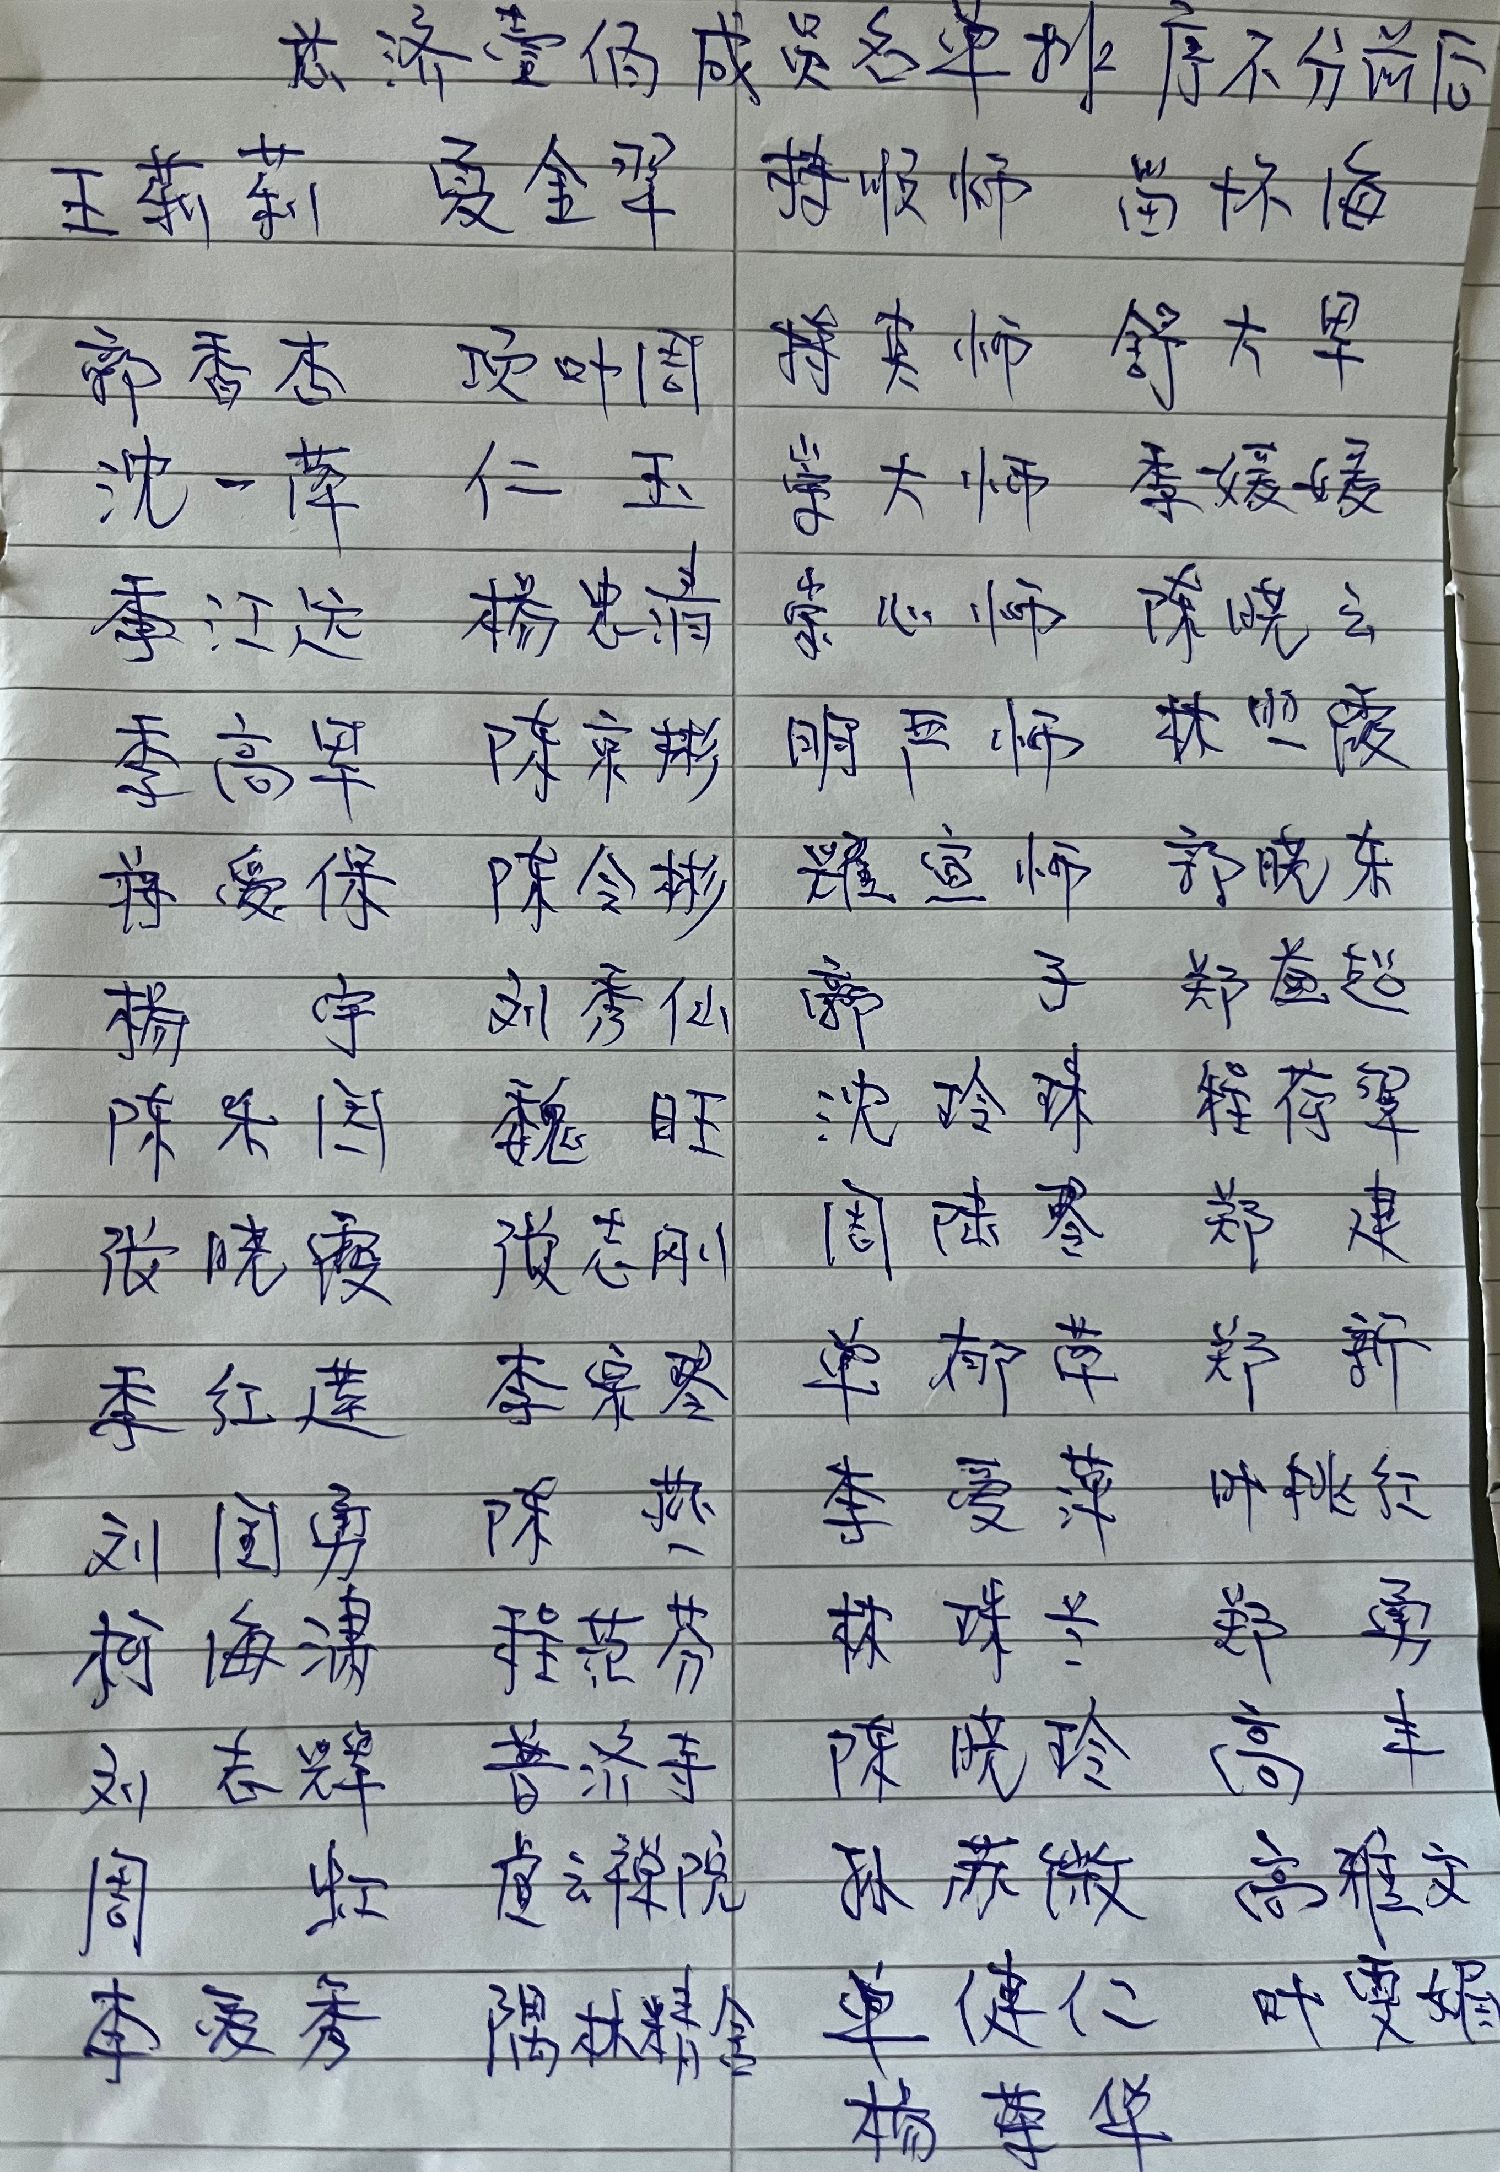 慈济壹佰成员名单排序不分前后
王莉莉 夏金翠 持顺师 留怀海
郭香杏 项叶周 持英师 舒大早
沈一萍 仁玉 崇大师 季媛媛
季江运 杨忠清 崇心师 陈晓云
季高早 陈京彬 明严师 林照霞
蒋爱保 陈令彬 耀宣师 郭晓东
杨宇 刘秀仙 郭子 郑益超
陈朱国 魏旺 沈玲珠 程荷翠
张晓霞 张志刚 周陆琴 郑建
季红莲 李宗琴 单郁草 郑新
刘国勇 陈燕 李爱萍 叶桃红
柯海潇 程范芬 林珠兰 郑勇
刘志辉 普济寺 陈晓玲 高丰
周虹 虚云禅院 孙苏微 高雅文
李爱秀 隅林精舍 单健仁 叶雯娟
杨萍华